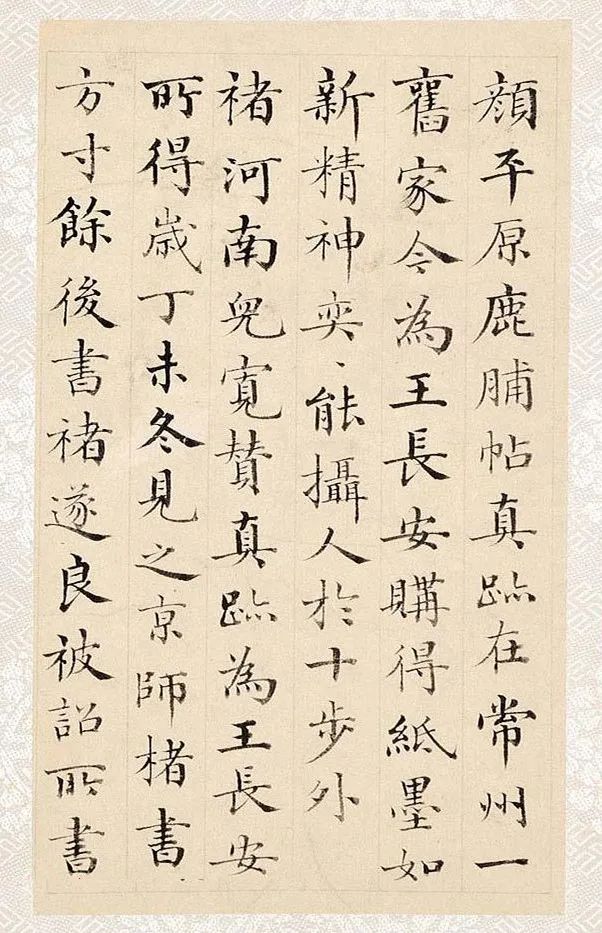 顔平原鹿脯帖真跡在常州一
舊家今為王長安購得紙墨如
新精神奕〻能攝人於十步外
褚河南兒寬贊真跡為王長安
所得歲丁未冬見之京師楮書
方寸餘後書褚遂良被詔所書